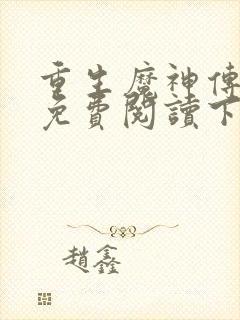 重生魔神傳
免費閱讀下
趙鑫